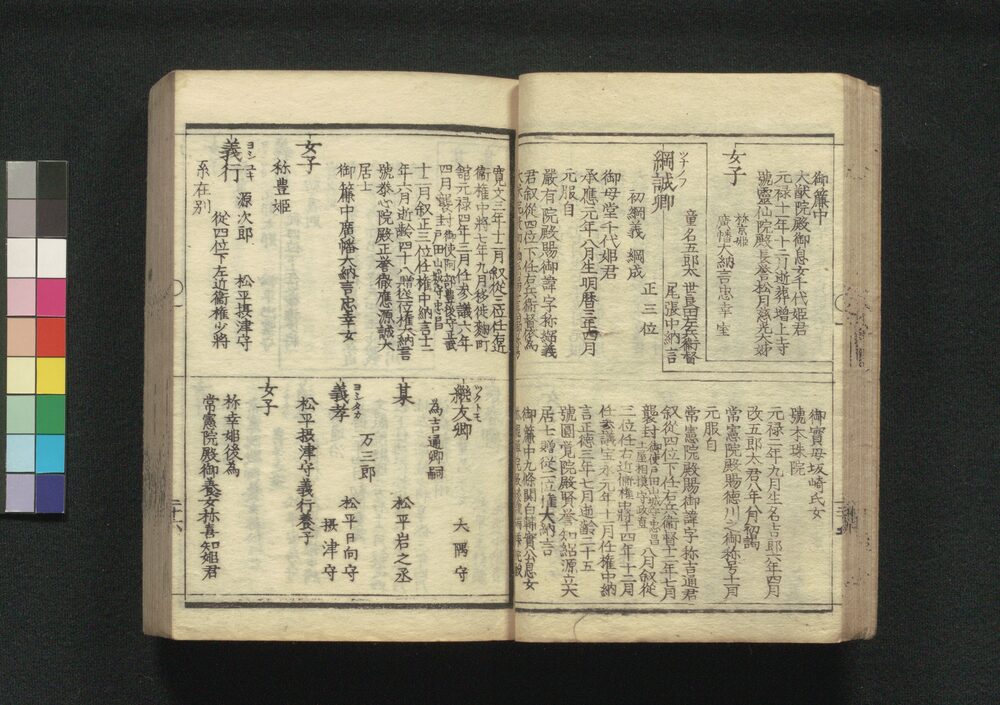 御簾中
大猷院殿御息女千代姫君
元禄十一年十二月逝葬増上寺
號靈仙院殿長誉松月慈光大姉
女子
称京姫
廣幡大納言忠幸室
ツナノフ
綱誠卿
童名五郎太
世良田右兵衛督
尾張中納言
正三位
初綱義 綱成
御母堂千代姫君
承應元年八月生明暦三年四月
元服自
嚴有院殿賜御諱字称綱義
君叙從四位下任右兵衛督後為
寛文三年十二月叙從三位任右近
衛権中將七年九月移徙麹町
館元禄四年三月任参議六年
四月襲封
御使阿部豊後守正武
戸田山城守忠昌
十二月叙正三位任権中納言十二
年六月逝齢四十八贈從二位権大納言
號泰心院殿正誉徹應源誠大
居士
御簾中廣幡大納言忠幸女
女子
称豊姫
ヨシユキ
義行
源次郎 松平摂津守
從四位下左近衛権少將
系在別
御實母坂崎氏女
號本珠院
元禄二年九月生名吉郎六年四月
改五郎太君八年八月初謁
常憲院殿賜徳川之御称号十一月
元服自
常憲院殿賜御諱字称吉通君
叙從四位下任右兵衛督十二年七月
襲封
御使戸田山城守忠昌
土屋相模守政直
八月叙從
三位任右近衛権中將十四年十二月
任参議宝永元年十二月任権中納
言正徳三年七月逝齢二十五
號圓覚院殿賢誉知紹源立大
居士贈從二位権大納言
御簾中九條関白輔實公息女
ツクトモ
継友卿
大隅守
為吉通卿嗣
某
松平岩之丞
ヨシタカ
義孝
万三郎
松平日向守
摂津守
松平摂津守義行養子
女子
称幸姫後為
常憲院殿御養女称喜知姫君
二十六